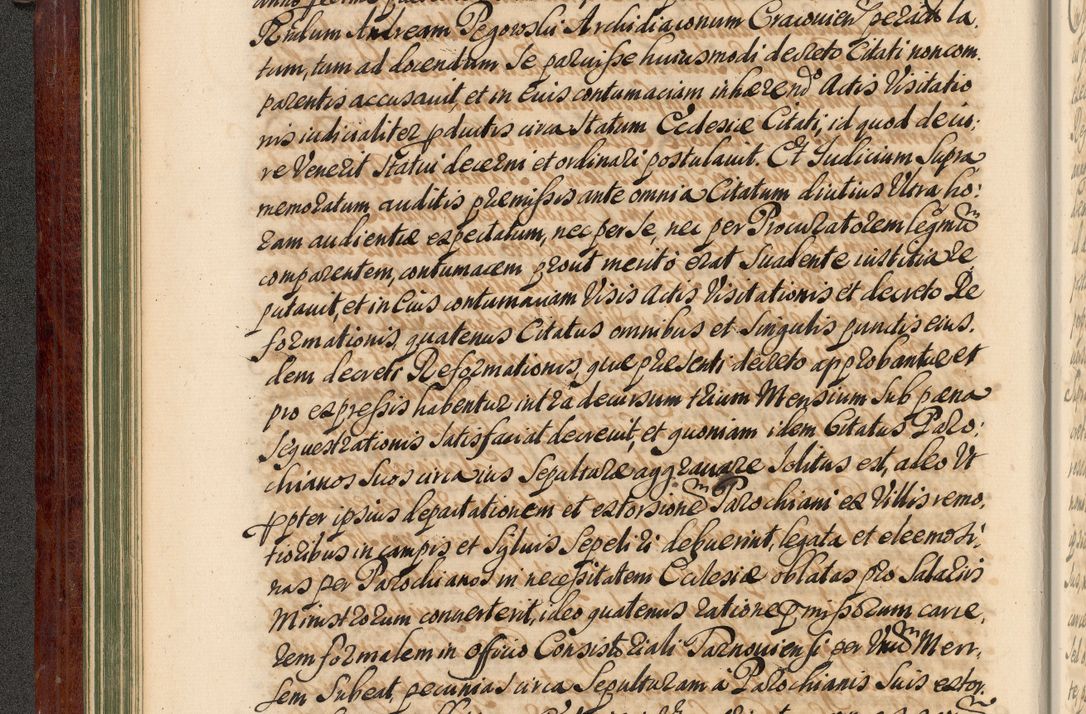 Rndum Andream Pegowski Archidiaconum Cracouien per acta la,
tum, tum ad docendum se paruisse huiusmodi decreto Citati non com,
parentis accusauit, et in Eius contumaciam inhærendo Actis Visitatio
nis iudicialiter pductis circa Statum Ecclesiæ Citati, id quod de iu,
re Venerit Statui decerni et ordinari postulauit. Et Iudicium Supra
memoratum auditis præmissis ante omnia Citatum diutius Vltra ho,
ram audientiæ expectatum, nec per se, nec per Procuratorem legmum
comparentem, contumacem prout merito erat Suadente iustitia re
putauit, et in Eius contumaciam Visis Actis Visitationis et decreto Re
formationis, quatenus Citatus omnibus et Singulis punctis eius,
dem decreti Reformationis, quæ præsenti decreto approbantur et
pro expressis habentur intra decursum trium Mensium Sub pæna
Sequestrationis Satisfaciat decreuit, et quoniam idem Citatus Paro,
chianos Suos circa ius Sepulturæ aggrauare Solitus est, adeo Vt
ppter ipsius depactationem et extorsionem Parochiani ex Villis remo,
tioribus in campis et Syluis Sepeliri debuerint, legata et eleemosi,
nas per Parochianos in necessitatem Ecclesiæ oblatas pro Salariis
Ministrorum conuerterit, ideo quatenus ratione pmissorum carce,
rem formalem in officio Consistoriali Tarnouiensi per Vnum Men,
sem Subeat, pecunias circa Sepulturam a Parochianis Suis extor,